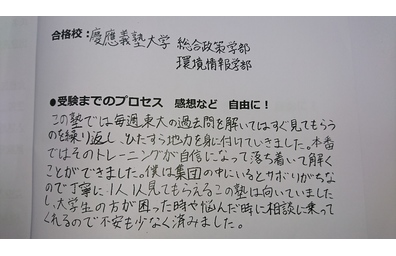 合格校：慶應義塾大学 総合政策学部
環境情報学部
●受験までのプロセス 感想など 自由に！
この塾では毎週東大の過去問を解いてはすぐ見てもらう
のを練り返し、ひたすら地力を身に付けていきました。本番
ではそのトレーニングが自信になって落ち着いて解く
ことができました。僕は集団の中にいるとサボりがちな
ので丁寧に1人1人見てもらえるこの塾は向いていました
し、大学生の方が困った時や悩んだ時に相談に乗って
くれるので不安も少なく済みました。